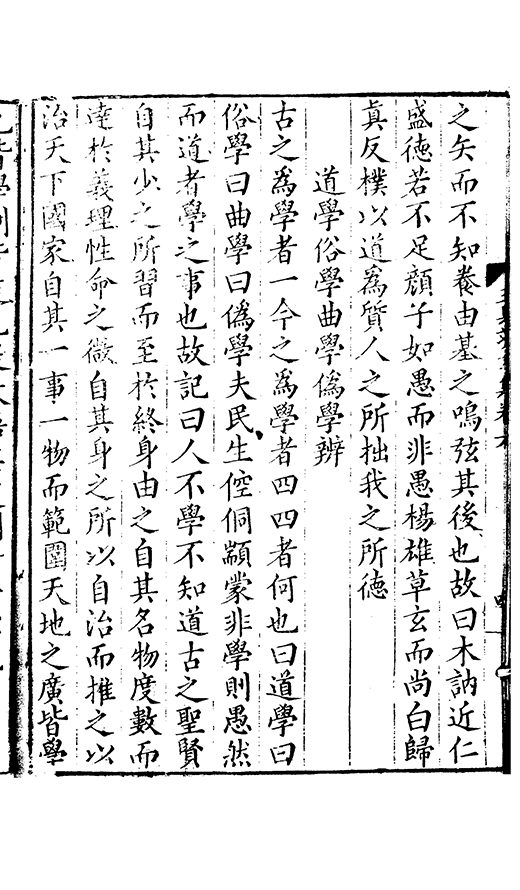 之矢而不知養由基之鳴弦其後也故曰木訥近仁
盛徳若不足顔子如愚而非愚楊雄草玄而尚白歸
真反樸以道為質人之所拙我之所徳
道學俗學曲學偽學辨
古之為學者一今之為學者四四者何也曰道學曰
俗學曰曲學曰偽學夫民生倥侗顓蒙非學則愚然
而道者學之事也故記曰人不學不知道古之聖賢
自其少之所習而至於終身由之自其名物度數而
達於義理性命之微自其身之所以自治而推之以
治天下國家自其一事一物而範圍天地之廣皆學